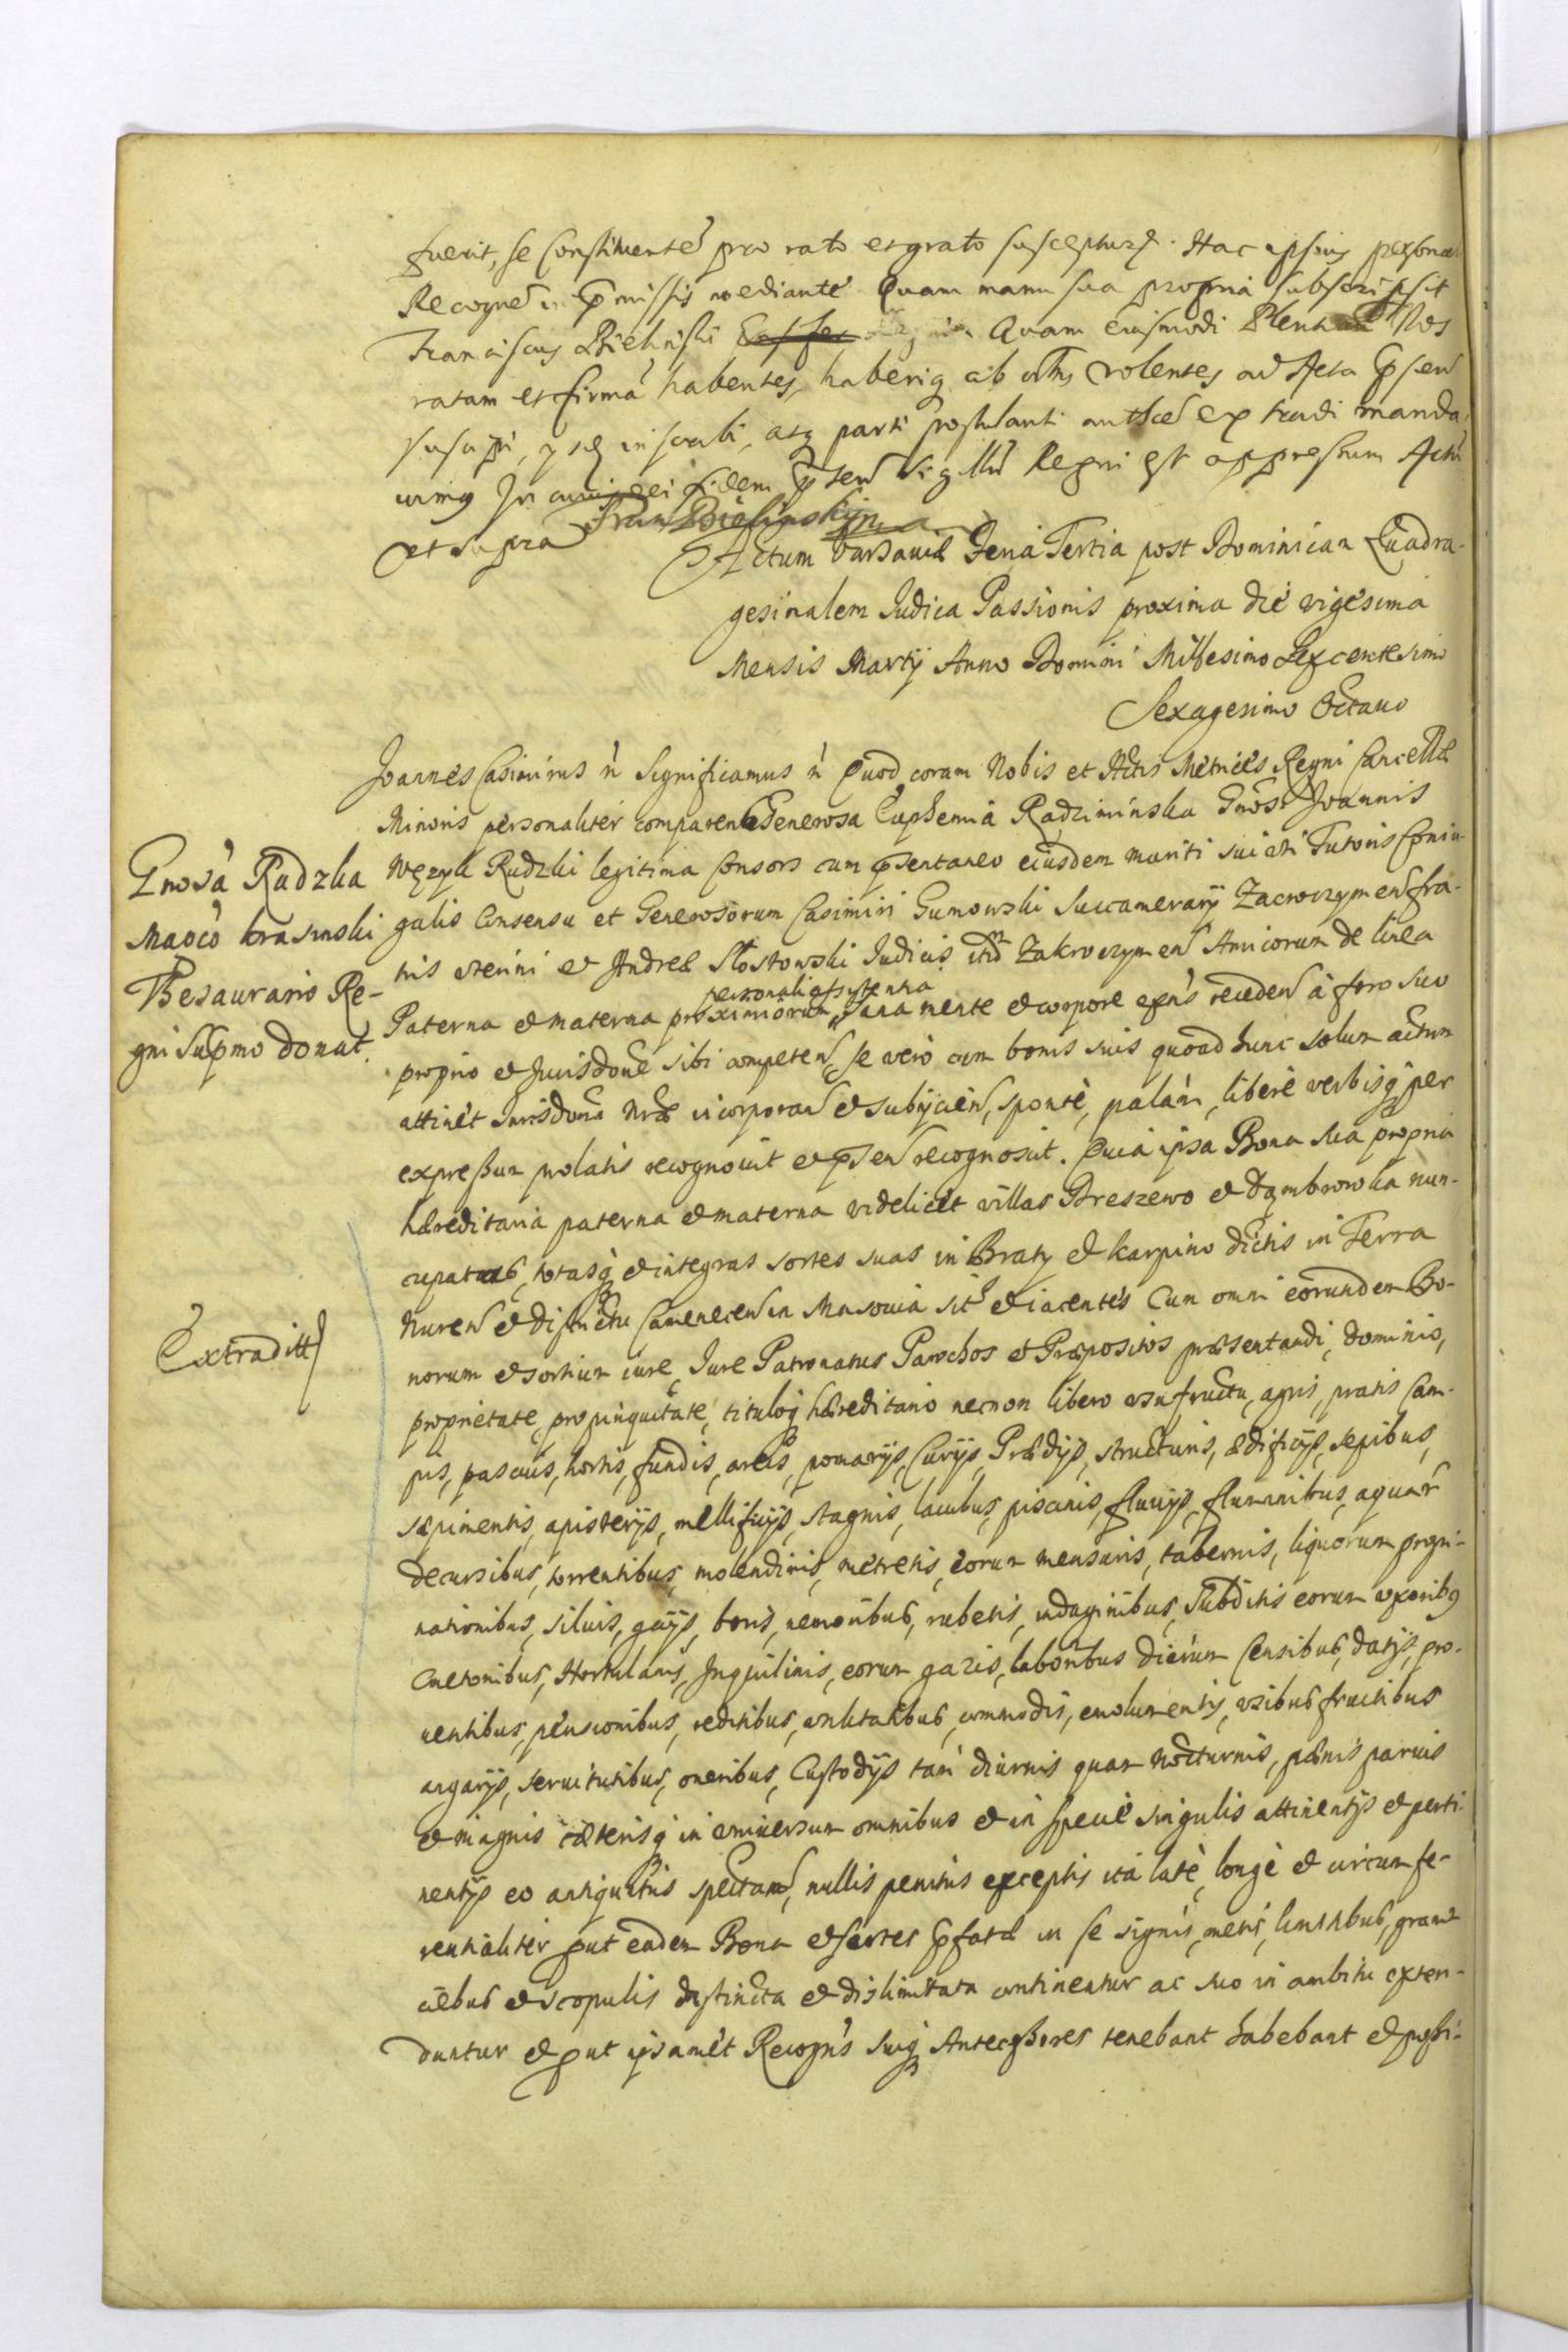 fuerit, se Constituentes pro rato et grato suscepturz. Hac ipsius personali
Recogne in pmissis mediante. Quam manu sua propria subscripsit
Franciscus Bielinski Quam eiusmodi Plenam Nos
ratam et firmã habentes, haberiq ab oĩbus volentes ad Acta pnsen
suscipi, inscribi, atq parti postulanti authce extradi manda
uimus In cuius rei fidem pnsen Sigillũ Regni est appressum Actũ
et supra Fran Bielinski mp
Actum Varsaviæ Feria Tertia post Dominican Quadra-
gesimalem Judica Passionis proxima die vigesima
Mensis Martij Anno Domini Millesimo Sexcentesimo
Sexagesimo Octavo
Joannes Casimirus ñ Significamus ñ Quod coram Nobis et Actis Metrices Regni Cancellæ
Minoris personaliter comparens Generosa Euphemia Radziminska Gnosi Joannis
Gnosa Rudzka
Mãoco Krasinski
Thesaurario Re-
gni Supmo donat.
Wężyk Rudzki legitima Consors cum psentaneo eiusdem mariti sui eti Tutoris Coniu-
galis Consensu et Generosorum Casimiri Gumowski Succamerarij Zacroczymen fra-
tris uterini et Andreæ Mostowski Judicis itid Zakroczymen Amicorum de linea
personali assistentia
Paterna et materna proximiorum, sana mente et corpore exns receden à foro suo
proprio et Jurisdone sibi competen, se vero cum bonis suis quoad hunc solum actum
attinet Jurisdoni Nræ incorporan et subijcien, sponte, palàm, liberè verbisq per
expressum prolatis recognovit et pnsen recognoscit. Quia ipsa Bona sua propria
hæreditaria paterna et materna videlicet villas Breszewo et Dąmbrowka nun-
cupatas, totasq et integras sortes suas in Braty et Karpino dictis in Terra
Extraditt
Nuren et districtu Camenecen in Masovia sit et iacentes Cum omni eorundem Bo-
norum et sortium iure, Jure Patronatus Parochos et Præpositos præsentandi, dominio,
proprietate, propinquitate, tituloq hæreditario necnon libero usufructu, agris, pratis Cam-
pis, pascuis, hortis, fundis, areis, pomarijs, Curijs, Prædijs, structuris, ædificijs, sepibus,
sæpimentis, apisterijs, mellificijs, stagnis, lacubus, piscinis, fluvijs, fluminibus, aquar
decursibus, torrentibus, molendinis, metretis, eorum mensuris, tabernis, liquorum propi-
nationibus, silvis, gaijs, boris, nemoribus, rubetis, indaginibus, Subditis eorum uxoribq
Cmetonibus, Hortulanis, Inquilinis, eorum gazis, laboribus dierum Censibus, datijs, pro-
ventibus, pensionibus, reditibus, utilitatibus, commodis, emolumentis, usibus fructibus
angarijs, servitutibus, oneribus, Custodijs tam diurnis quam nocturnis, pænis parvis
et magnis cæterisq in universum omnibus et in specie singulis attinentijs et perti-
nentijs eo antiquitus spectan, nullis penitus exceptis ita latè, longè et circumfe-
rentialiter put eadem Bona et sortes pfatæ in se signis, metis, limitibus, grani-
ciebus et scopulis distincta et dislimitata continentur ac suo in ambitu exten-
duntur et put ipsamet Recogns suiq Antecessores tenebant habebant et possi-